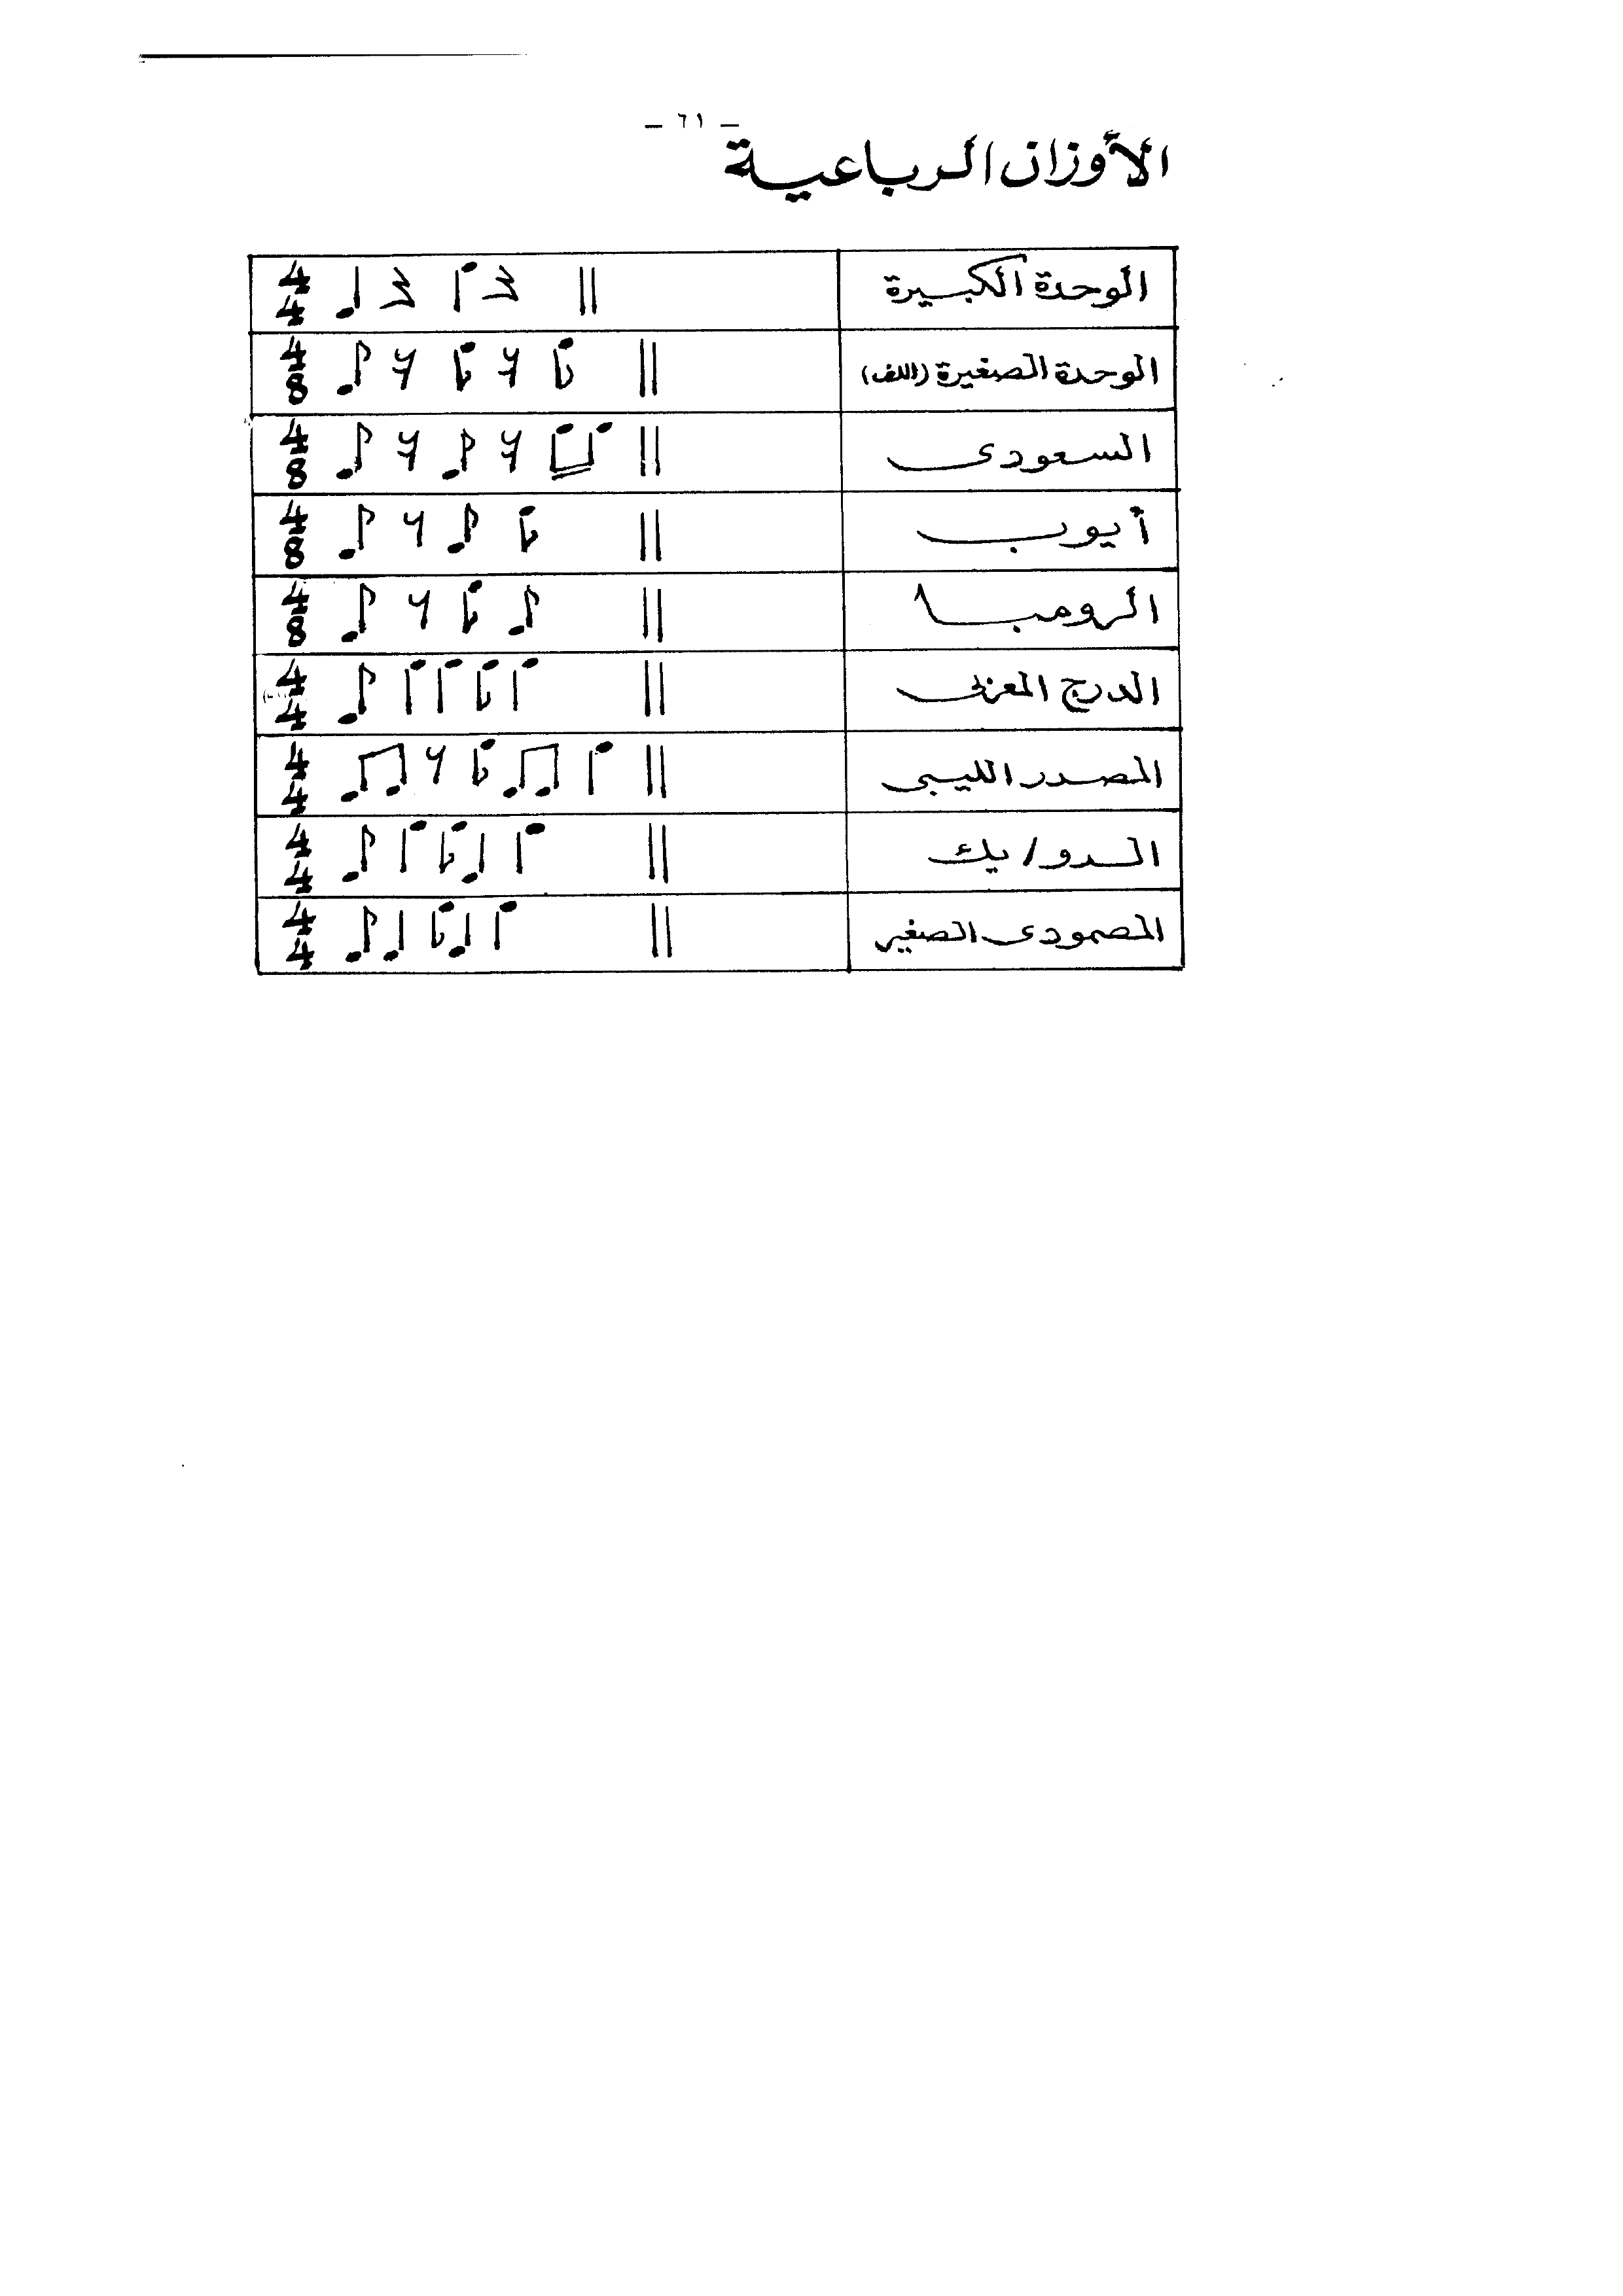 — ٦١ —
الأوزان الرباعية
الوحدة الكبيرة 4/4
الوحدة الصغيرة (اللف) 4/8
السعودى 4/8
أيوب 4/8
الرومبا 4/8
الدرج المغربى 4/4
المصدر الليبى 4/4
الدو/يك 4/4
المصمودى الصغير 4/4